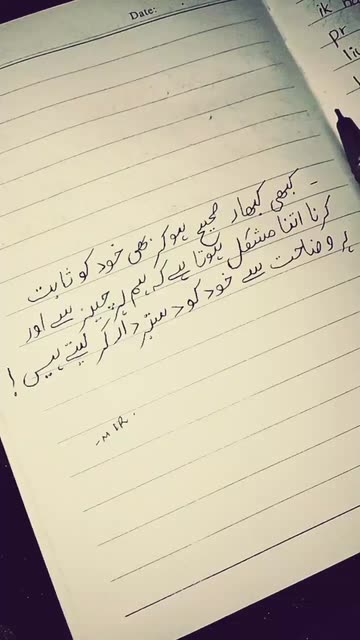 Date:
ik
pr
li
۔ کبھی کبھار صحیح ہو کر بھی خود کو ثابت
کرنا اتنا مشکل ہوتا ہے کہ ہم ہر چیز سے اور
ہر وضاحت سے خود کو دستبردار کر لیتے ہیں !
-MIR.